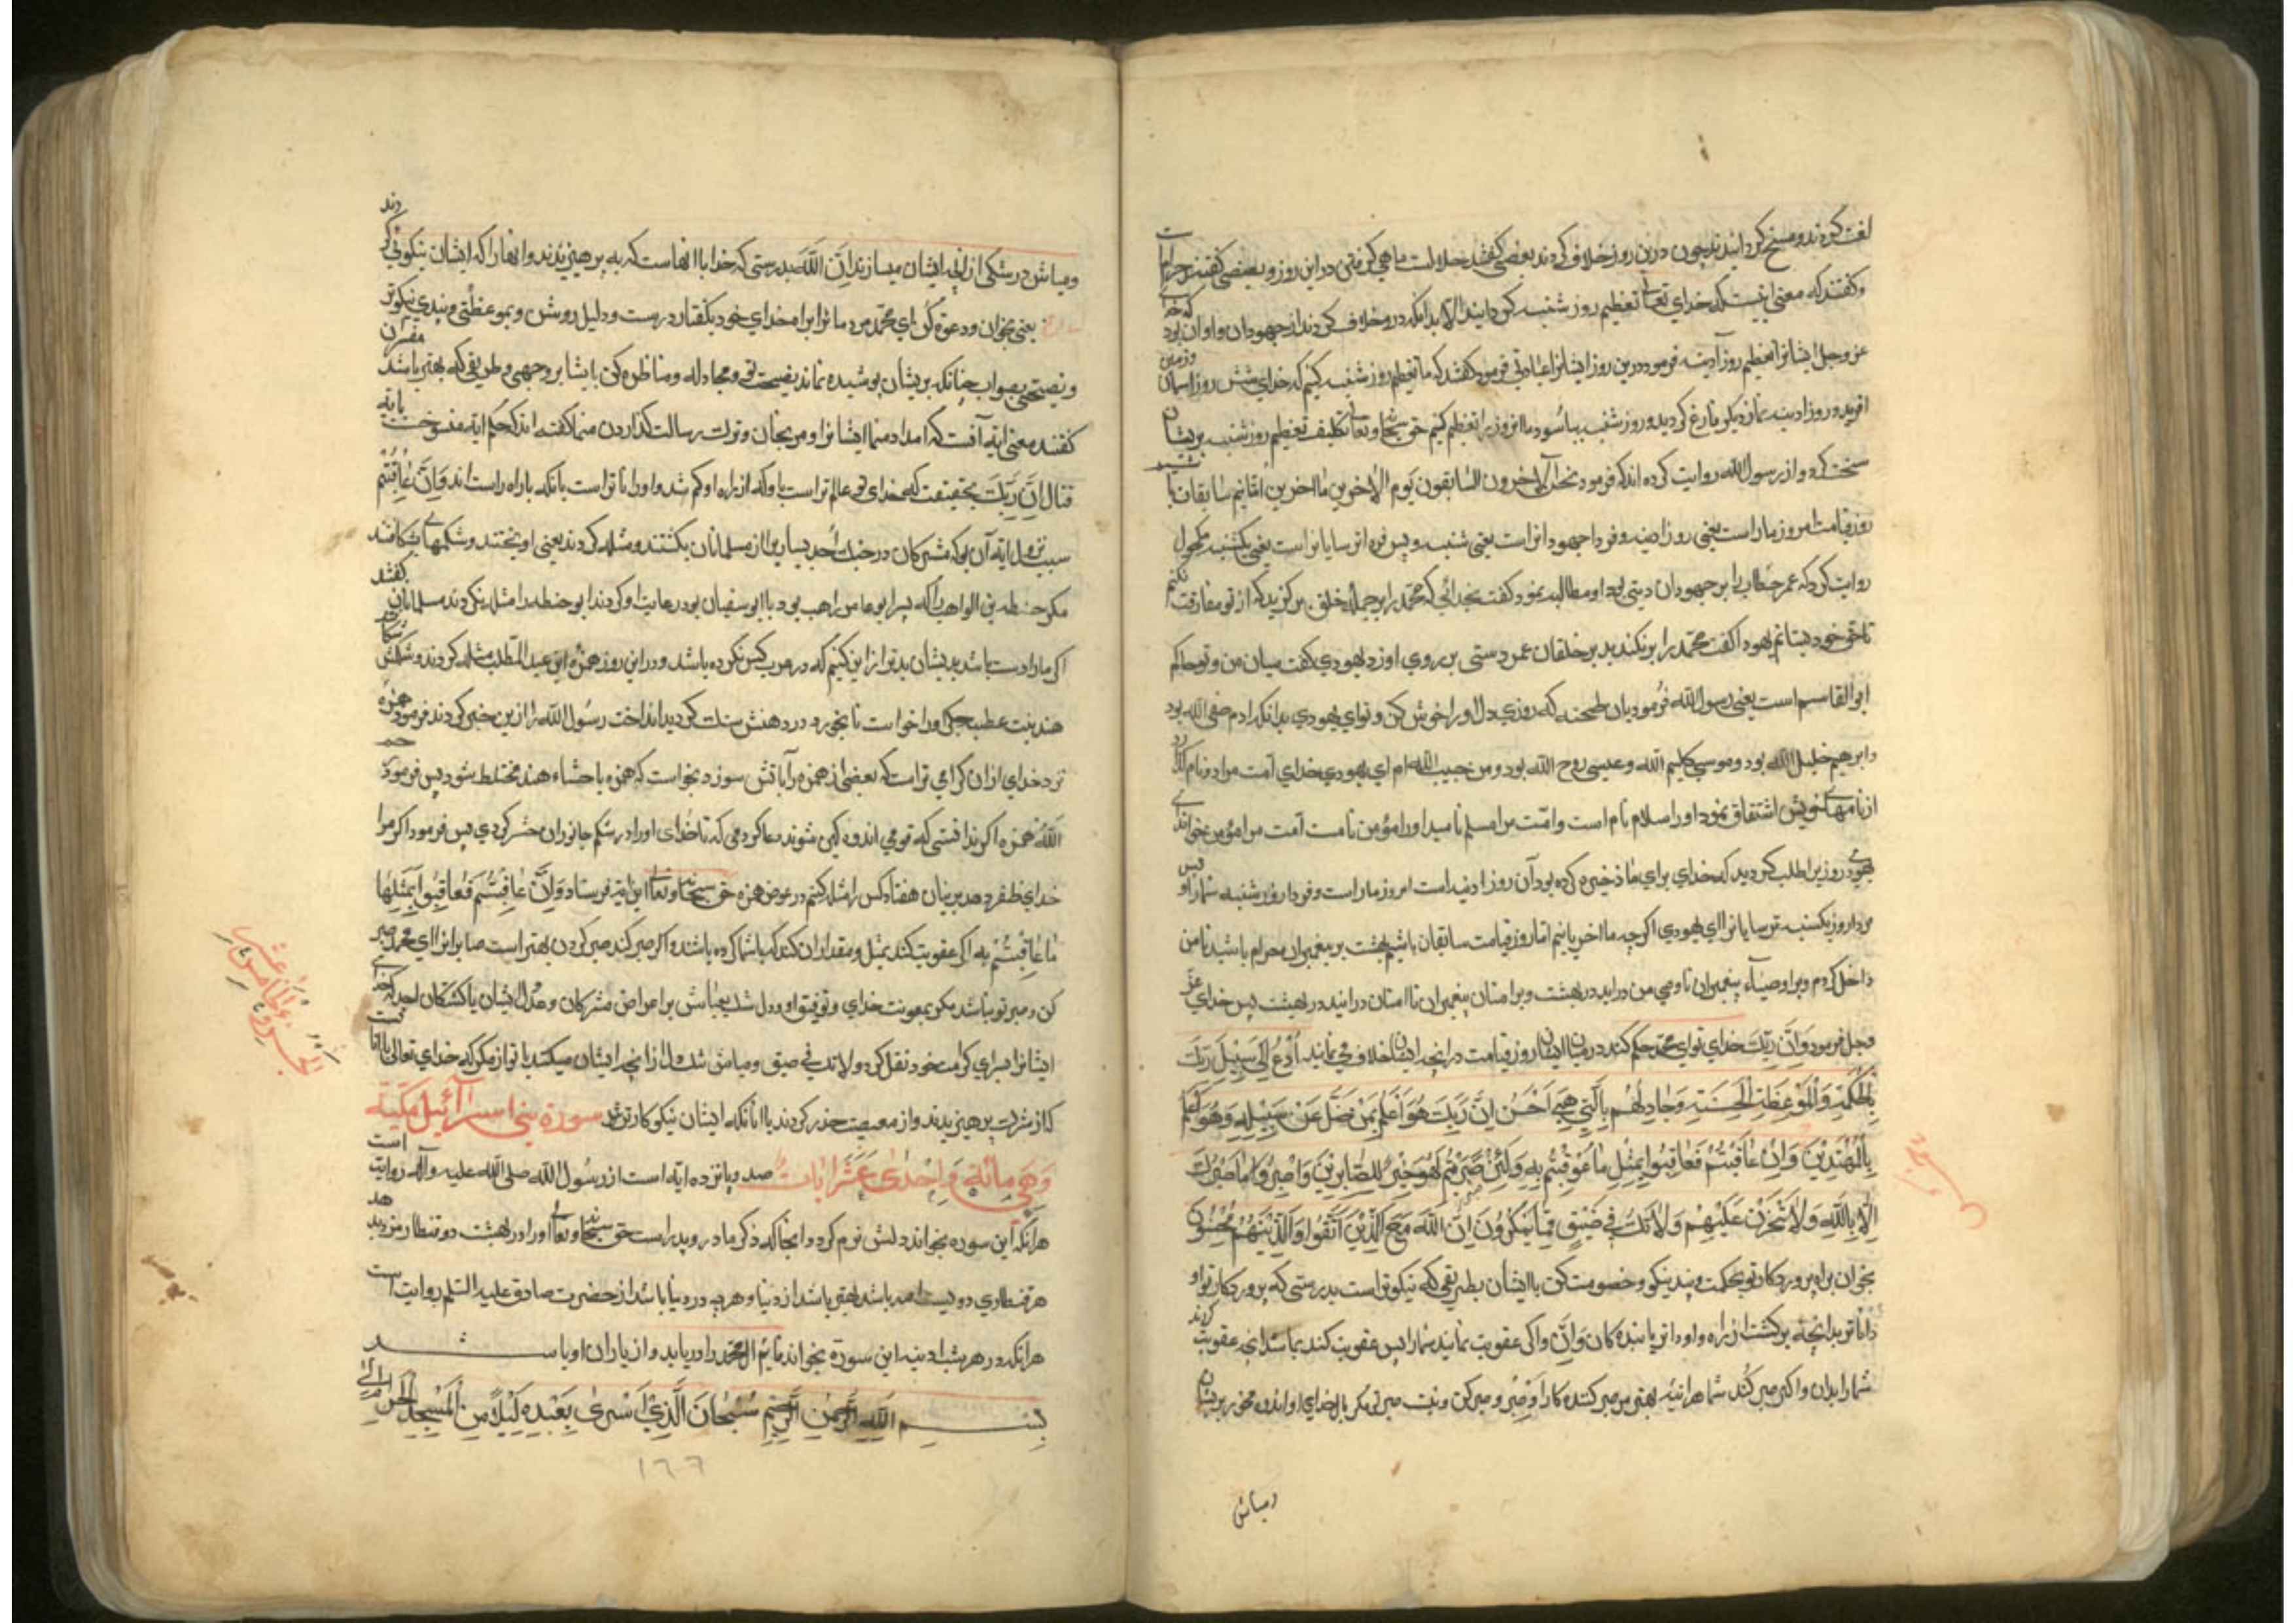 لعنت کردند و مسخ گردانیدند چون درین روز خلاف کردند بعضی گفتند حلالست ماهی گرفتن در این روز و بعضی گفتند حرامست
و گفتند که معنی اینست که خدای تعالی تعظیم روز شنبه گردانید الا بدانکه درو خلاف کردند از جهودان و اوان بود که خدای
عز وجل ایشانرا تعظیم روز آدینه فرمود درین روز ایشانرا عبادتی فرمود گفتند که ما تعظیم روز شنبه کنیم که خدای شش روز آسمان و زمین
افرید و روز ادینه نماز دیگر فارغ گردید و روز شنبه بیاسود ما انروز را تعظیم کنیم حق سبحانه و تعالی تکلیف تعظیم روز شنبه بریشان
سخت کرد و از رسول الله روایت کرده اند که فرمود نحن الآخرون السابقون یوم ما اخرین امتانیم سابقان باشیم
روز قیامت امروز ماراست یعنی روز ادینه و فردا جهودانراست یعنی شنبه و پس فردا ترسایانراست یعنی یکشنبه مکحول
روایت کرد که عمر خطاب را بر جهودان دینی بود او مطالبه نمود گفت بخدائی که محمد را بر جمله خلق برگزید که از تو مفارقت نکنم
تا حق خود بستانم یهود گفت محمد را برنگزید بر خلقان عمر دستی بر روی او زد یهودی گفت میان من و تو حاکم
ابو القاسم است یعنی رسول الله فرمود بان طمحنه که روزی دل اورا خوش کن و تو ای یهودی بدانکه ادم صفی الله بود
و ابرهیم خلیل الله بود و موسی کلیم الله و عیسی روح الله بود و من حبیب الله ام ای یهودی خدای امت مرا دو نام
از نامهای خویش اشتقاق نمود اورا سلام نام است و امت مرا مسلم نامید اورا مؤمن نامست امت مرا مؤمن خواند ای
یهودی روزی را طلب کردید که خدای برای ما ذخیره کرده بود آن روز ادینه است امروز ماراست و فردا روز شنبه شمارا و پس
فردا روز یکشنبه ترسایانرا ای یهودی اگرچه ما اخر باشیم اما روز قیامت سابقان باشیم بهشت بر پیغمبران حرام باشد تا من
داخل گردم و بر اوصیاء پیغمبران تا وصی من دراید در بهشت و بر امتان پیغمبران تا امتان درایند در بهشت پس خدای عز
وجل فرمود وان ربک خدای تو ای محمد حکم کند در میان ایشان روز قیامت در انچه ایشان خلاف می نمایند ادع الی سبیل ربک
بالحکمة والموعظة الحسنة وجادلهم بالتی هی احسن ان ربک هو اعلم بمن ضل عن سبیله وهو اعلم
بالمهتدین وان عاقبتم فعاقبوا بمثل ما عوقبتم به ولئن صبرتم لهو خیر للصابرین واصبر وما صبرک
الا بالله ولا تحزن علیهم ولا تک فی ضیق مما یمکرون ان الله مع الذین اتقوا والذین هم محسنون
بخوان براه پروردکار تو بحکمت و پند نیکو و خصومت کن با ایشان بطریقی که نیکوتر است بدرستی که پروردکار تو او
داناتر بدانچه برگشت از راه او و او داناتر یابنده کان وان و اگر عقوبت نمائید شما پس عقوبت کنید مانند انچه عقوبت کردند
شما را بدان و اگر صبر کنید شما هراینه بهتر مر صبر کننده کان را واصبر و صبر کن و نیست صبر تو مگر بالله خدای او اندوه مخور بریشان
ومباش
و مباش در تنگی از انچه ایشان میسازند ان الله بدرستی که خدا با انهاست که بپرهیزیدند و انها را که ایشان نیکوئی کردند
یعنی بخوان و دعوت کن ای محمد مردمانرا براه خدای خود بگفتار درست و دلیل روشن و بموعظتی و پندی نیکوتر
و نصیحتی بصواب چنانکه بریشان پوشیده نماند نصیحت تو و مجادله و مناظره کن با ایشان بر وجهی و طریقی که بهتر باشد مفسران
گفتند معنی آیه آنست که ایشانرا و مرنجان و تولت رسالت گذاردن گفته اند که حکم آیه منسوخست بآیه
قتال ان ربک بحقیقت که خدای تو عالم تر است باو که از راه او گم شد و او داناتر است بانکه باراه راست اند وان عاقبتم
سبب نزول آیه آن بود که مشرکان در جنگ احد بسیاریرا از مسلمانان بکشتند و مثله کردند یعنی اویختند و شکمهای شکافتند
مگر حنظله بن الراهب را که پسر ابو عامر راهب بود با ابوسفیان بود رعایت او کردند ابو حنظله را مثله نکردند مسلمانان گفتند
اگر ما را دست باشد بدیشان بدتر از این کنیم که در عرب کس نکرده باشد و در این روز حمزه ابن عبد المطلب مثله کردند و شکمش
هند بنت عطب جگر اورا خواست تا بخورد در دهنش سنگ گردید انداخت رسول الله را ازین خبر کردند فرمود حمزه
نزد خدای ازان گرامی تر است که بعضی از حمزه را باتش سوزد نخواست که حمزه با حشاء هند مختلط شود پس فرمود
الله حمزه اگر نه انستی که قومی اندوهگین شوند دعا کردمی که تا خدای اورا در شکم جانوران حشر کردی پس فرمود اگر مرا
خدای ظفر دهد بریشان هفتاد کس را مثله کنم در عوض حمزه حق سبحانه و تعالی این ایه فرستاد وان عاقبتم فعاقبوا بمثلها
ما عاقبتم به اگر عقوبت کنید بمثل و مقدار ان کنید که با شما کرده باشند و اگر صبر کنید صبر کردن بهتر است صابرانرا ای محمد صبر
کن و صبر تو نباشد مگر بمعونت خدای و توفیق او و دل مباش بر اعراض مشرکان و عدل ایشان یا کشتکان احد که خدای
ایشانرا بسرای کرامت خود نقل کرد ولا تک فی ضیق و مباش تنگ دل از انچه ایشان میکنند با تو از مکر که خدای تعالی با انانست
که از شرک پرهیزیدند و از معصیت حذر کردند با انانکه ایشان نیکوکارترند سورة بنی اسرآئیل مکیة
وهی مائة واحدی عشر ایات صد و یازده ایه است از رسول الله صلی الله علیه وآله روایت است
هر انکه این سوره بخواند دلش نرم گردد انجا که ذکر مادر و پدر است حق سبحانه و تعالی اورا در بهشت دو قنطار مزد بدهد
هر قنطاری دویست صد باشد بهتر باشد از دنیا و هرچه در دنیا باشد از حضرت صادق علیه السلم روایت است
هر انکه در هر شب ادینه این سوره بخواند قایم ال محمد را دریابد و از یاران او باشد
بسم الله الرحمن الرحیم سبحان الذی اسری بعبده لیلا من المسجد الحرام الی
الجزو الخامس عشر
١٦٦